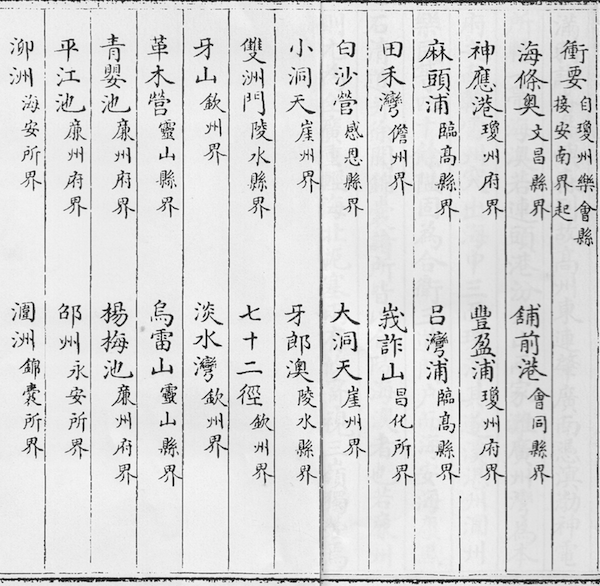 衝要自瓊州樂會縣接安南界起
海條奥文昌縣界 舖前港會同縣界
神應港瓊州府界 豐盈浦瓊州府界
麻頭浦臨髙縣界 吕灣浦臨髙縣界
田禾灣儋州界 峩詐山昌化所界
白沙營感恩縣界 大洞天崖州界
小洞天崖州界 牙郎澳陵水縣界
雙洲門陵水縣界 七十二徑欽州界
牙山欽州界 淡水灣欽州界
革木營靈山縣界 烏雷山靈山縣界
青嬰池廉州府界 楊梅池廉州府界
平江池廉州府界 邵州永安所界
泖洲海安所界 潿洲錦囊所界